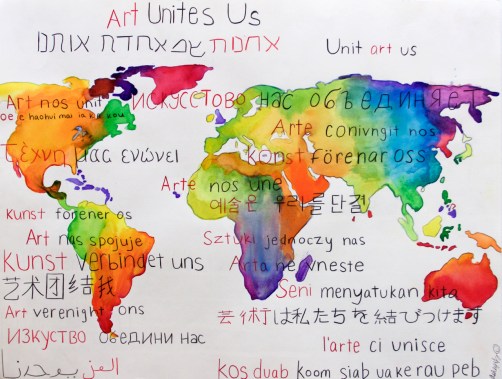 Art Unites Us
Unit art us
Art nos unit
ИСКУССТОВО нас объединяет
Arte conivngit nos
Τέχνη μας ενώνει
Konst förenar oss
Arte nos une
예술은 우리를 단결
Kunst forener os
Art nas spojuje
Sztuki jednoczy nas
Kunst verbindet uns
Arta ne vneste
艺术团结我
Seni menyatukan kita
Art verenight ons
芸術は私たちを結びつけます
ИЗКУСТВО обедини нас
l'arte ci unisce
الفن يوحدنا
kos duab koom siab ua ke rau peb